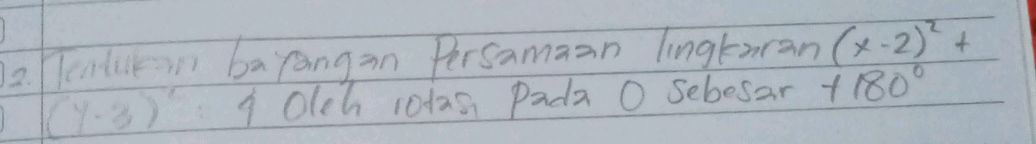 12. Tentukan bayangan Persamaan lingkaran (x-2)² +
(y-3)² = 4 Oleh rotasi Pada O Sebesar +180°